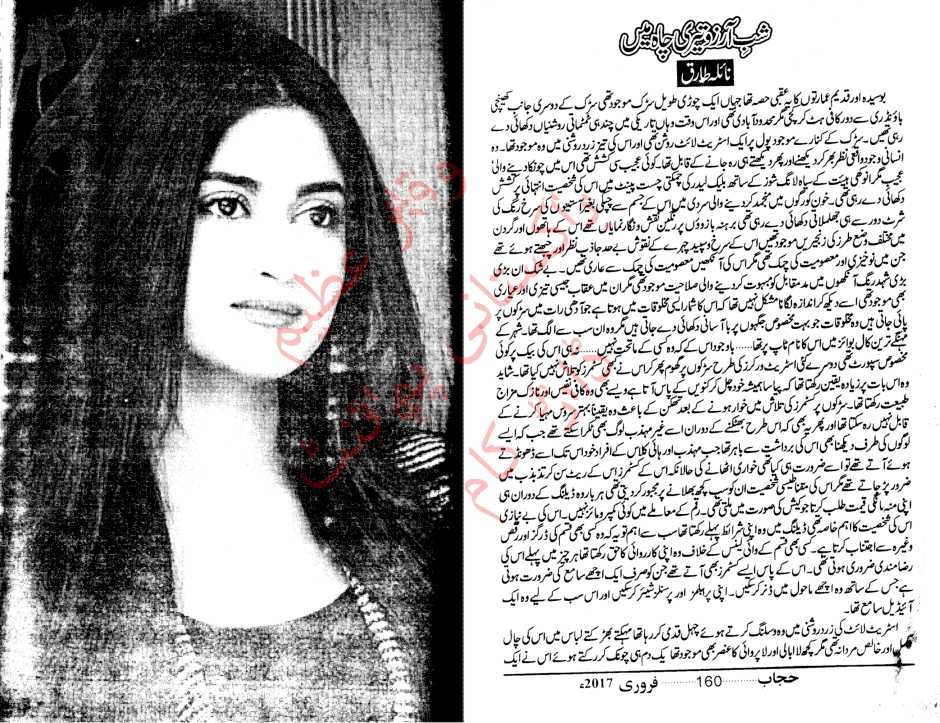 شبِ آرزو تیری چاہ میں
نائلہ طارق
بوسیدہ اور قدیم عمارتوں کا یہ عقبی حصہ تھا جہاں ایک چوڑی طویل سڑک موجود تھی سڑک کے دوسری جانب کھینچی
باؤنڈری سے دور کافی ہٹ کر بچی تھی مگر محدود آبادی تھی اور اس وقت وہاں تاریکی میں چند ہی ٹمٹماتی روشنیاں دکھائی دے
رہی تھیں۔ سڑک کے کنارے موجود پول پر ایک اسٹریٹ لائٹ روشن تھی اور اس کی تیز زرد روشنی میں وہ موجود تھا۔ وہ
انسانی وجود واقعی نظر بھر کر دیکھنے اور پھر دیکھتے ہی رہ جانے کے قابل تھا۔ کوئی عجیب سی کشش تھی اس میں چونکا دینے والی
عجیب مگر انوکھی ہیئت کے سیاہ لانگ شوز کے ساتھ بلیک لیدر کی چمکتی چست پینٹ میں اس کی شخصیت انتہائی پرکشش
دکھائی دے رہی تھی۔ خون کو رگوں میں منجمد کر دینے والی سردی میں اس کے جسم سے چپکی بغیر آستینوں کی سرخ رنگ کی
شرٹ دور سے ہی جھلملاتی دکھائی دے رہی تھی برہنہ بازوؤں پر رنگین نقش و نگار نمایاں تھے اس کے ہاتھوں اور گردن
میں مختلف وضع طرز کی زنجیریں موجود تھیں اس کے سرخ و سپید چہرے کے نقوش بے حد جاذب نظر اور چبھتے ہوئے تھے
جن میں نوخیزی اور معصومیت کی چمک تھی مگر اس کی آنکھیں معصومیت کی چمک سے عاری تھیں۔ بے شک ان بڑی
بڑی شہد رنگ آنکھوں میں مدمقابل کو مبہوت کر دینے والی صلاحیت موجود تھی مگر ان میں عقاب جیسی تیزی اور عیاری
بھی موجود تھی اسے دیکھ کر اندازہ لگانا مشکل نہیں تھا کہ اس کا شمار ایسی مخلوقات میں ہوتا ہے جو آدھی رات میں سڑکوں پر
پائی جاتی ہیں وہ مخلوقات جو بہت مخصوص جگہوں پر با آسانی دکھائی دے جاتی ہیں مگر وہ ان سب سے الگ تھا۔ شہر کے
مہنگے ترین کال بوائز میں اس کا نام ٹاپ پر تھا...... باوجود اس کے کہ وہ کسی کے ماتحت نہیں...... نہ ہی اس کی بیک پر کوئی
مخصوص سپورٹ تھی دوسرے کئی اسٹریٹ ورکرز کی طرح سڑکوں پر گھوم پھر کر اس نے بھی کسٹمرز کو تلاش نہیں کیا تھا۔ شاید
وہ اس بات پر زیادہ یقین رکھتا تھا کہ پیاسا ہمیشہ خود چل کر کنویں کے پاس آتا ہے ویسے بھی وہ کافی نفیس اور نازک مزاج
طبیعت رکھتا تھا۔ سڑکوں پر کسٹمرز کی تلاش میں خوار ہونے کے بعد تھکن کے باعث وہ یقیناً بہتر سروس مہیا کرنے کے
قابل نہیں رہ سکتا تھا اور پھر یہ بھی کہ اس طرح بھٹکنے کے دوران اسے غیر مہذب لوگ بھی ٹکرا سکتے تھے جب کہ ایسے
لوگوں کی طرف دیکھنا بھی اس کی برداشت سے باہر تھا جب مہذب اور ہائی کلاس کے افراد خود اس تک اسے ڈھونڈتے
ہوئے آتے تھے تو اسے ضرورت ہی کیا تھی خواری اٹھانے کی حالانکہ اس کے کسٹمرز اس کے ریٹ سن کر تذبذب میں
ضرور پڑ جاتے تھے مگر اس کی مقناطیسی شخصیت ان کو سب کچھ بھلانے پر مجبور کر دیتی تھی ہر بار وہ ڈیلنگ کے دوران ہی
اپنی منہ مانگی قیمت طلب کرتا جو کیش کی صورت میں ملتی تھی۔ رقم کے معاملے میں کوئی کمپرومائز نہیں۔ اس کی بے نیازی
اس کی شخصیت کا اہم خاصہ تھی ڈیلنگ میں وہ اپنی شرائط پہلے رکھتا تھا سب سے اہم تو یہ کہ وہ کسی بھی قسم کی ڈرگز اور رقص
وغیرہ سے اجتناب کرتا ہے۔ کسی بھی قسم کے وائی لینس کے خلاف وہ اپنی کارروائی کا حق رکھتا تھا ہر چیز میں پہلے اس کی
رضامندی ضروری ہوتی تھی۔ اس کے پاس ایسے کسٹمرز بھی آتے تھے جن کو صرف ایک اچھے سامع کی ضرورت ہوتی
ہے جس کے ساتھ وہ اچھے ماحول میں ڈنر کر سکیں۔ اپنی پرابلمز اور پرسنلز شیئر کر سکیں اور اس سب کے لیے وہ ایک
آئیڈیل سامع تھا۔
اسٹریٹ لائٹ کی زرد روشنی میں وہ وسلنگ کرتے ہوئے چہل قدمی کر رہا تھا مہکتے بھڑکتے لباس میں اس کی چال
اور خالص مردانہ تھی مگر کچھ لاابالی اور لاپروائی کا عنصر بھی موجود تھا یک دم ہی چونک کر رکتے ہوئے اس نے ایک
حجاب ........... 160 ........... فروری 2017ء